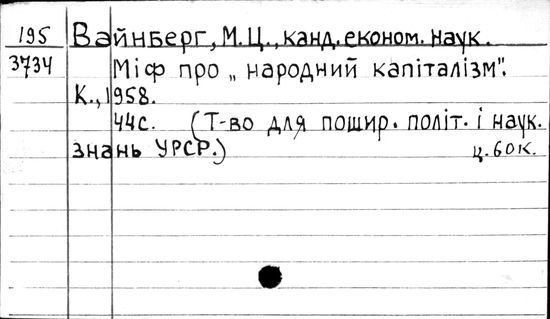 195 Вайнберг, М.Ц., канд. економ. наук.
3734 Міф про „народний капіталізм".
К., 1958.
44с. (Т-во для пошир. політ. і наук.
знань УРСР.) ц. 60к.